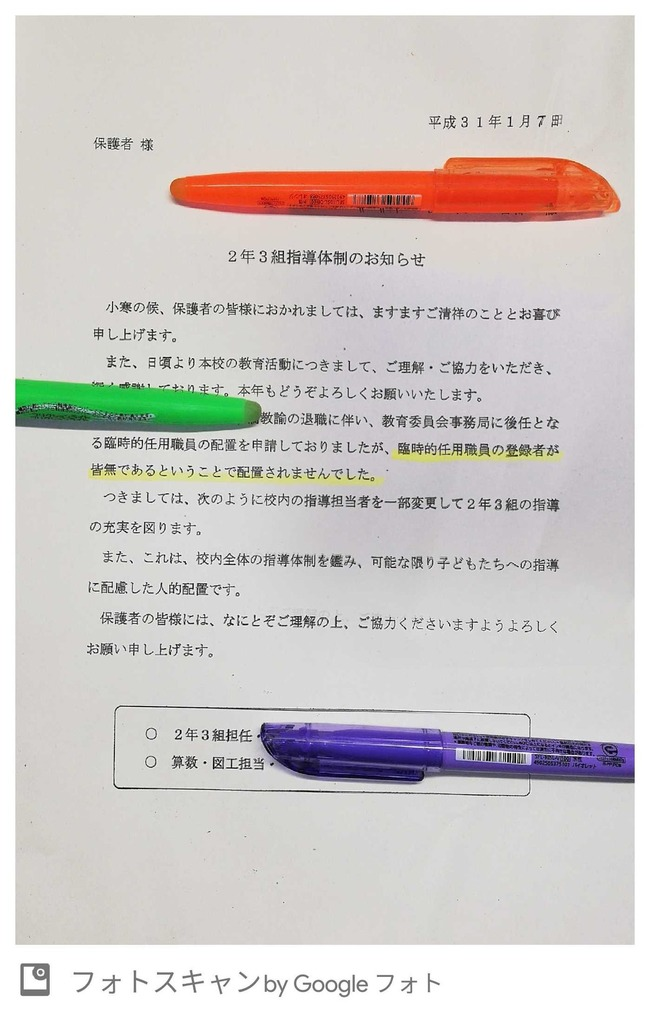 平成31年1月7日
保護者 様
2年3組指導体制のお知らせ
小寒の候、保護者の皆様におかれましては、ますますご清祥のこととお喜び
申し上げます。
また、日頃より本校の教育活動につきまして、ご理解・ご協力をいただき、
しております。本年もどうぞよろしくお願いいたします。
教諭の退職に伴い、教育委員会事務局に後任とな
る臨時的任用職員の配置を申請しておりましたが、臨時的任用職員の登録者が
皆無であるということで配置されませんでした。
つきましては、次のように校内の指導担当者を一部変更して2年3組の指導
の充実を図ります。
また、これは、校内全体の指導体制を鑑み、可能な限り子どもたちへの指導
に配慮した人的配置です。
保護者の皆様には、なにとぞご理解の上、ご協力くださいますようよろしく
お願い申し上げます。
○ 2年3組担任・
○ 算数・図工担当・
フォトスキャン by Google フォト